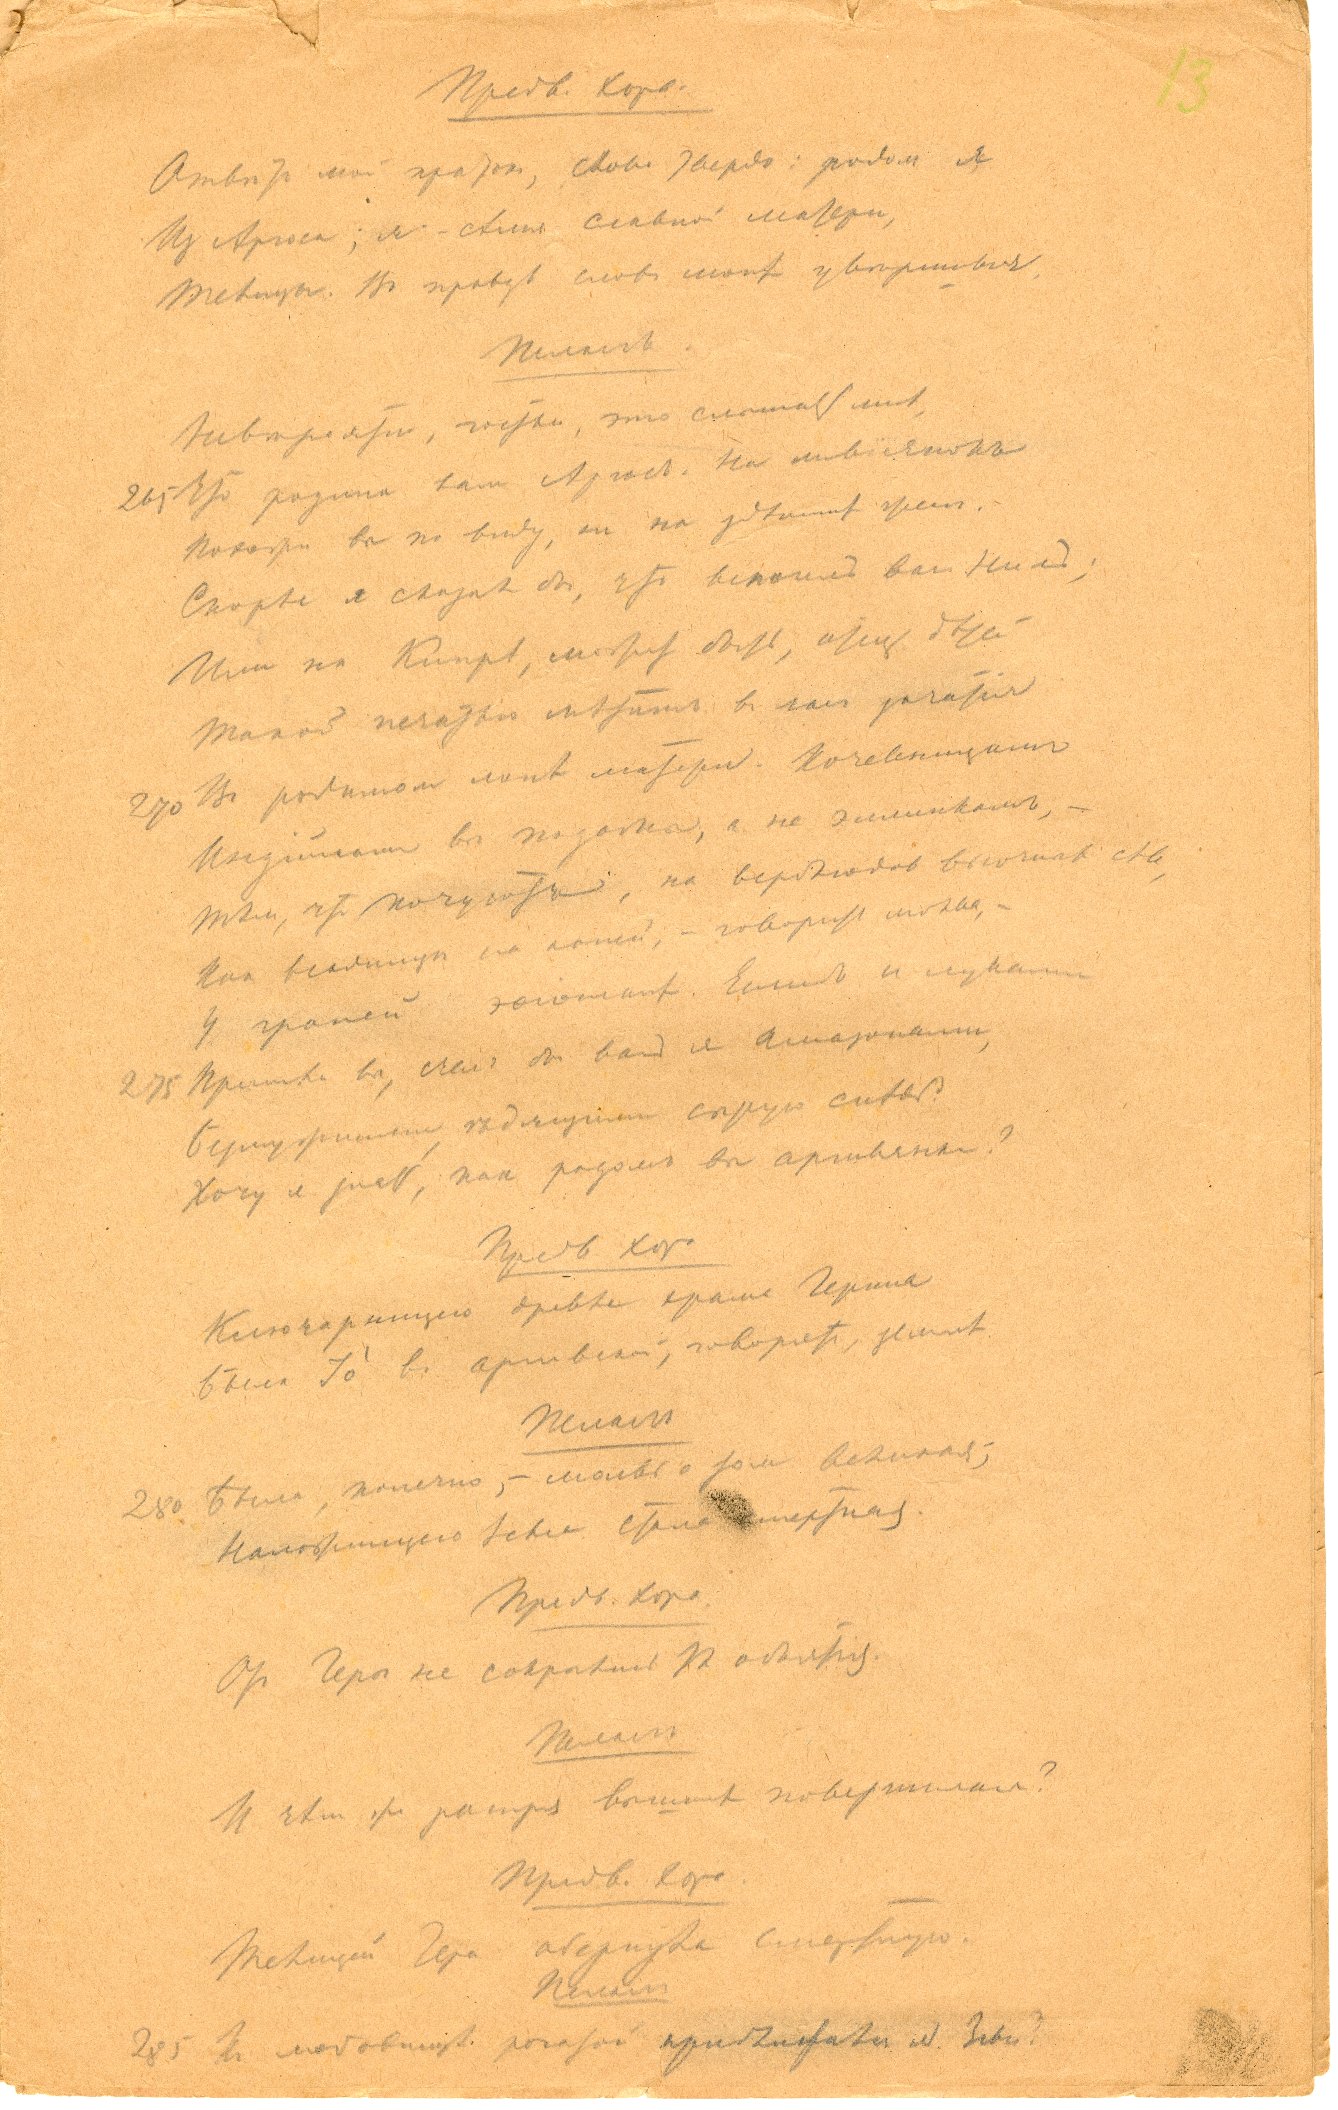 13
Предв. Хора.
Отвѣтъ мой кратокъ, слово твердо: родом я
Из Аргоса; я – сѣмя славной матери,
Телицы. Въ правдѣ слова моей увѣришься.
Пеласгъ.
Невѣроятно, гостьи, это слышать мнѣ,
265 Что родина вам Аргосъ. На ливіянокъ
Похожи вы по виду, не на здѣшних жен.
Скорѣе я сказал бы, что вспоилъ вас Нилъ;
Или на Кипрѣ, может быть, отец дѣтей
Такой печатью мѣтитъ в лонѣ зачатія
270 Въ родимом лонѣ матери. Кочевницам
Индійским вы подобны, а не эллинкамъ, –
Тѣм, что кочуютъ, на верблюдов высоких сѣв,
Как всадницы на коней, – говорит молва, –
У граней эѳіопских. Если б и луками
275 Владѣли вы, счел бы вас я Амазонками,
Безмужними, ѣдящими сырую снѣдь.
Хочу я знать, как родомъ вы аргивянки?
Предв Хора
Ключарницею древле храма Герина
Была Іо в аргивской, говорятъ, землѣ.
Пеласгъ
280 Была, конечно, – молва о том великая;
Наложницею Зевса стала смертная.
Предв. Хора.
От Геры не сокрылись их объятія.
Пеласгъ
И чѣм же распря вышних повершилась?
Предв. Хора.
Телицей Гера обернула смертную.
Пеласгъ
285 Къ любовницѣ рогатой приближался ль Зевс?